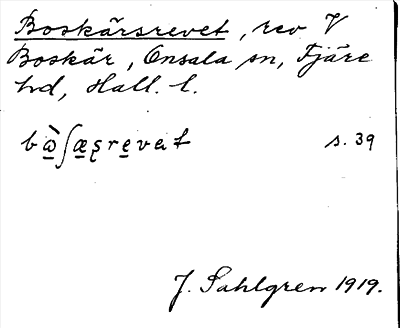 Boskärsrevet, rev V
Boskär, Onsala sn, Fjäre
hd, Hall. l.
s. 39
J. Sahlgren 1919.